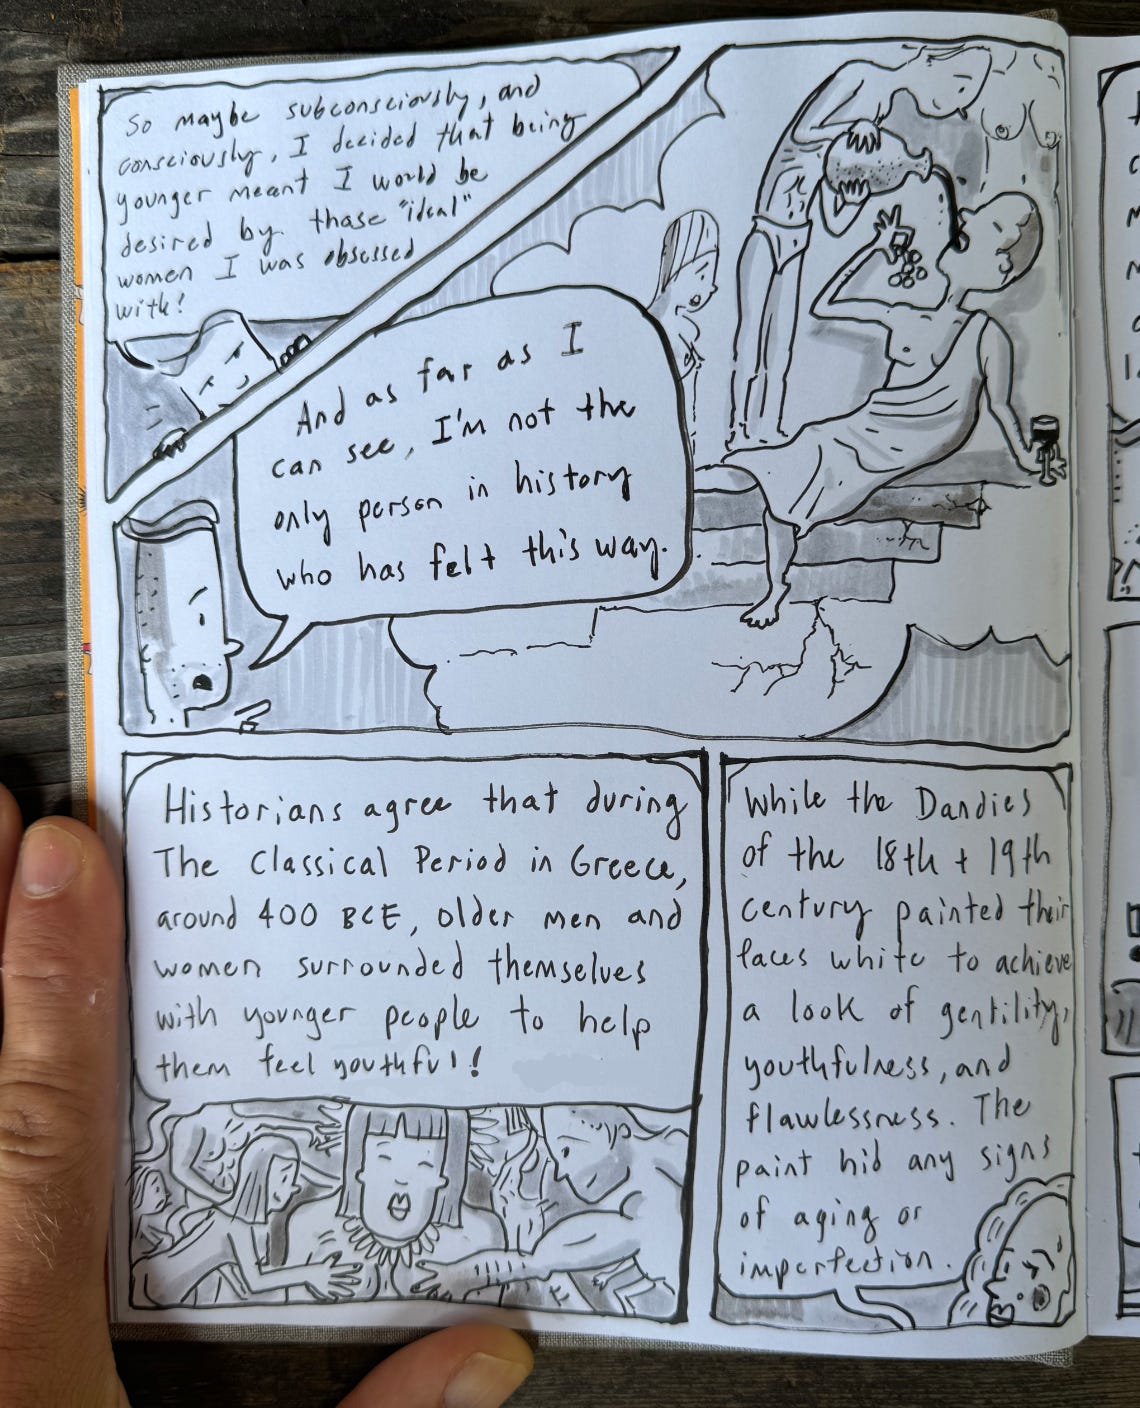 So maybe subconsciously, and
consciously, I decided that being
younger meant I would be
desired by those "ideal"
women I was obsessed
with!
And as far as I
can see, I'm not the
only person in history
who has felt this way.
Historians agree that during
The Classical Period in Greece,
around 400 BCE, older men and
women surrounded themselves
with younger people to help
them feel youthful!
While the Dandies
of the 18th + 19th
century painted their
faces white to achieve
a look of gentility,
youthfulness, and
flawlessness. The
paint hid any signs
of aging or
imperfection.